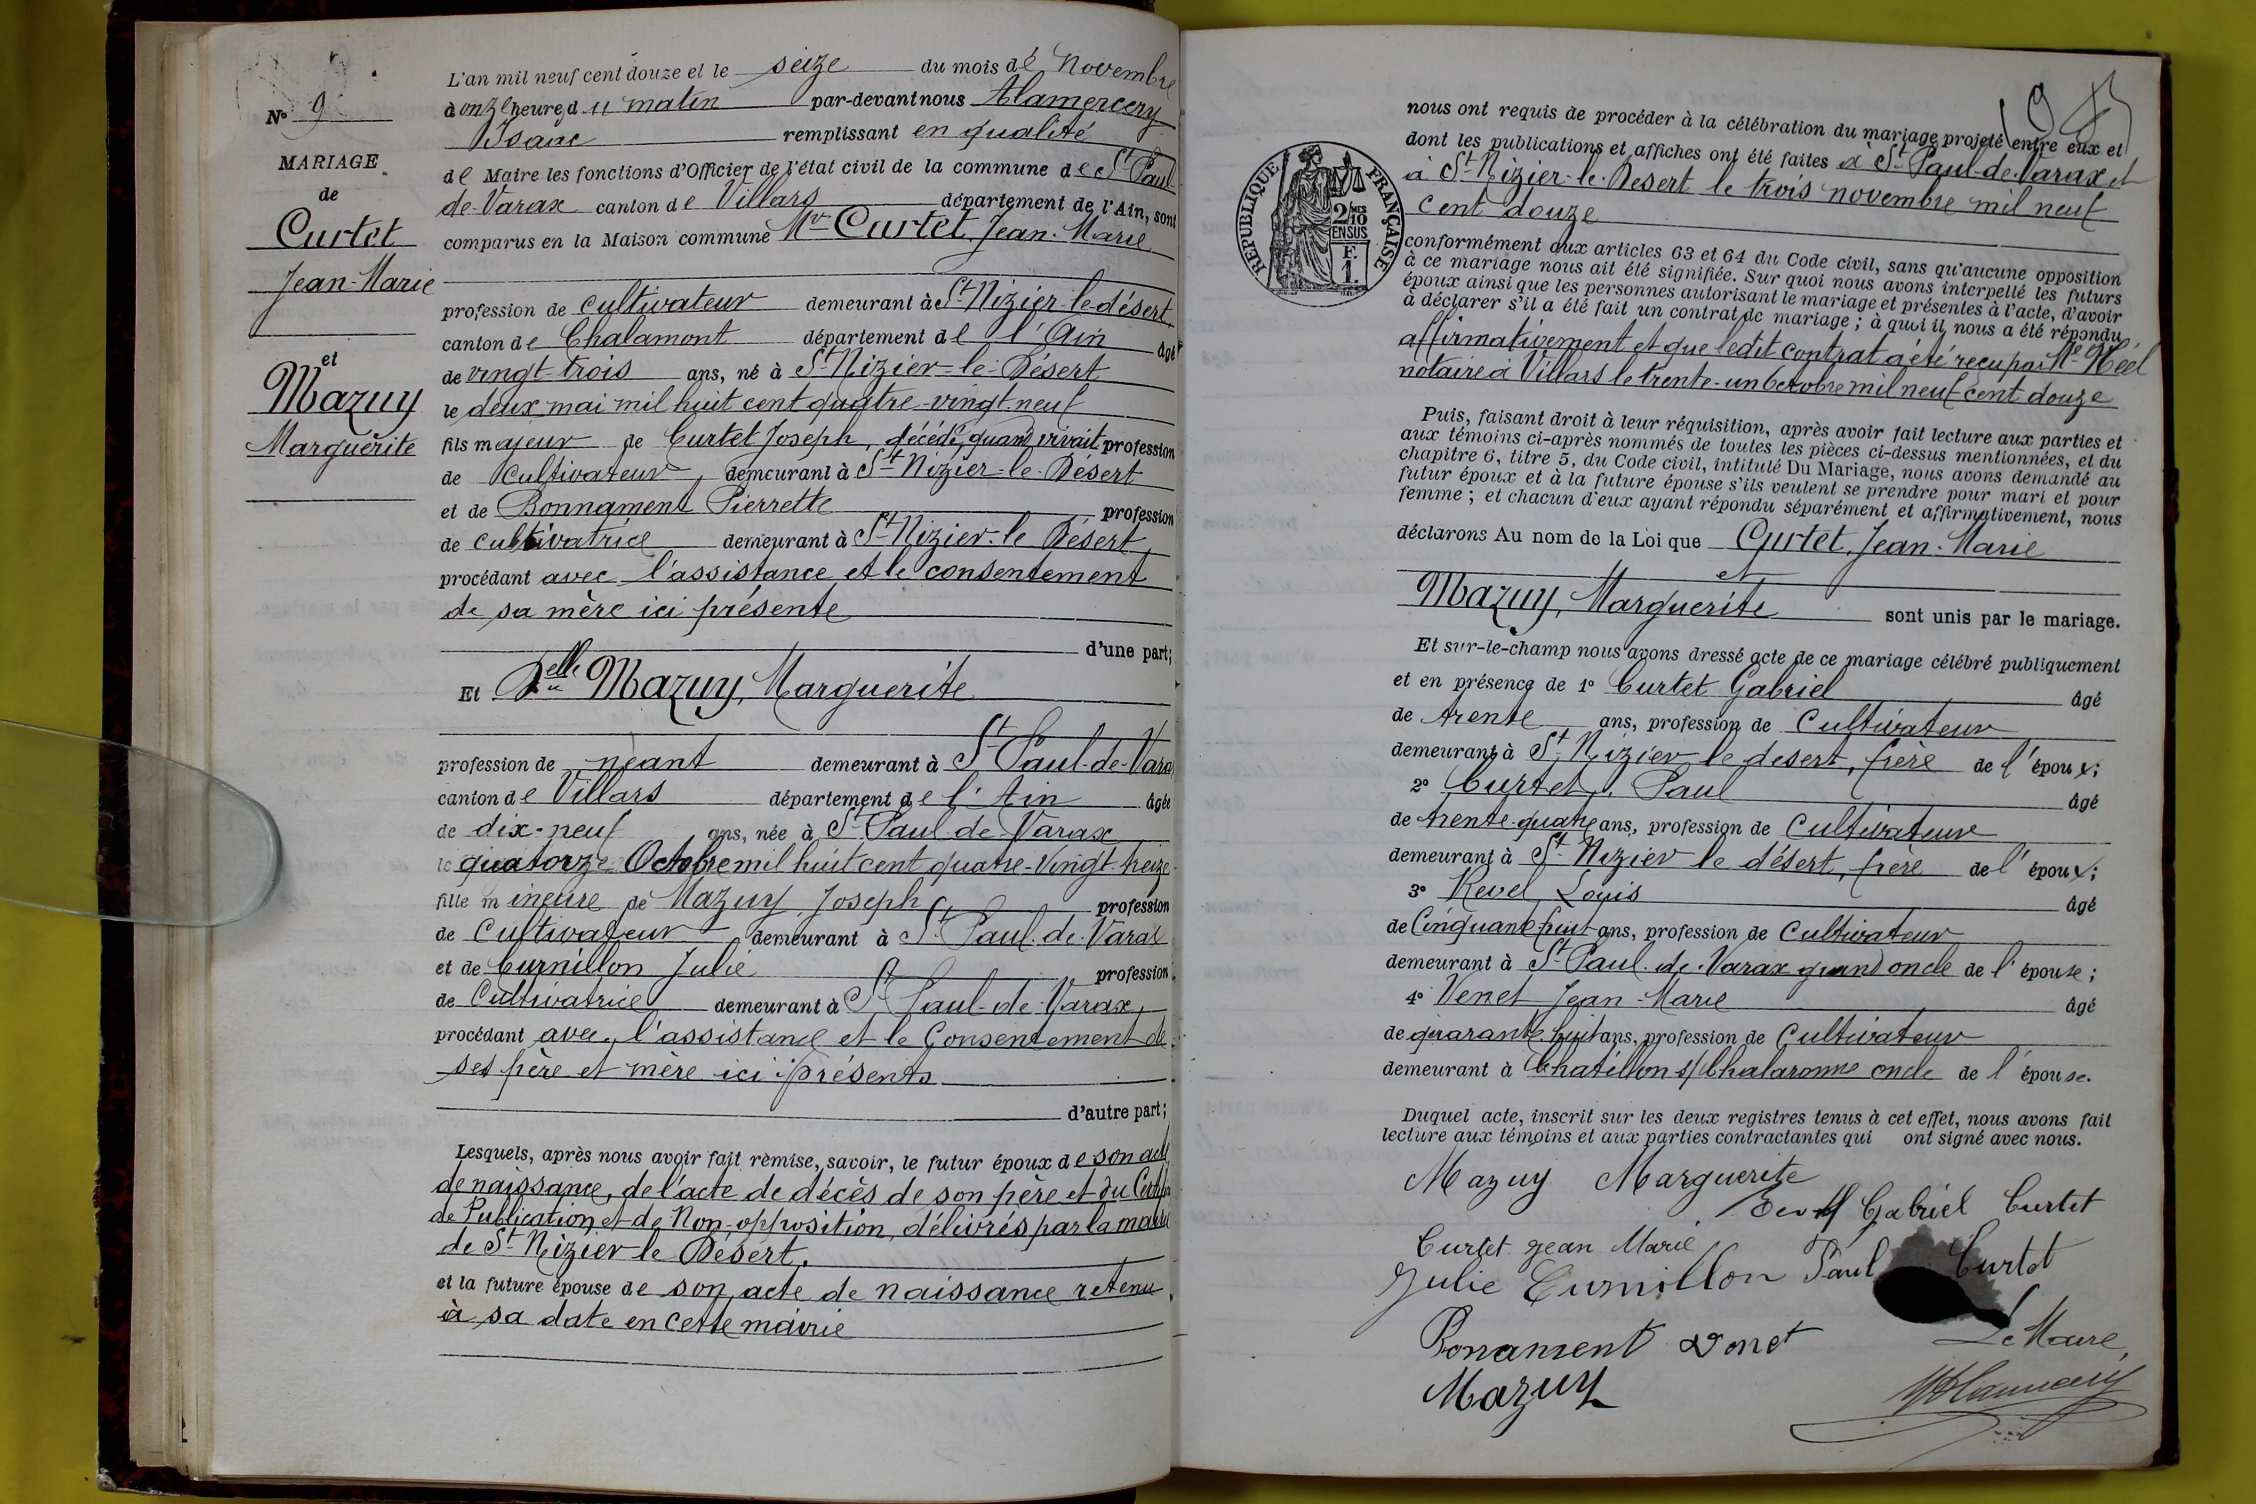 L'an mil neuf cent douze et le seize du mois de Novembre
à onze heure du matin par-devant nous Alamercery
Isaac remplissant en qualité
de Maire les fonctions d'Officier de l'état civil de la commune de St Paul
de-Varax canton de Villars département de l'Ain, sont
comparus en la Maison commune Mr Curtet, Jean-Marie
profession de cultivateur demeurant à St-Nizier-le-désert
canton de Chalamont département de l'Ain âgé
de vingt-trois ans, né à St-Nizier-le-Désert
le deux mai mil huit cent quatre-vingt-neuf
fils majeur de Curtet Joseph, décédé, quand vivait profession
de cultivateur, demeurant à St-Nizier-le-Désert
et de Bonnament Pierrette profession
de cultivatrice demeurant à St-Nizier-le Désert,
procédant avec l'assistance et le consentement
de sa mère ici présente
d'une part;
Et Delle Mazuy, Marguerite
profession de néant demeurant à St-Paul-de-Vara
canton de Villars département de l'Ain âgée
de dix-neuf ans, née à St-Paul-de-Varax
le quatorze Octobre mil huit cent quatre-vingt-treize
fille mineure de Mazuy Joseph profession
de Cultivateur demeurant à St-Paul-de-Varax
et de Curnillon Julie profession
de Cultivatrice demeurant à St-Paul-de-Varax,
procédant avec l'assistance et le Consentement de
ses père et mère ici présents
d'autre part;
Lesquels, après nous avoir fait remise, savoir, le futur époux de son acte
de naissance, de l'acte de décès de son père et du Certificat
de Publication et de Non-opposition, délivrés par la mairie
de St-Nizier-le Désert.
et la future épouse de son acte de naissance retenu
à sa date en cette mairie
No 9
MARIAGE
de
Curtet
Jean-Marie
et
Mazuy
Marguerite
nous ont requis de procéder à la célébration du mariage projeté entre eux et
dont les publications et affiches ont été faites à St-Paul-de-Varax et
à St-Nizier-le-Desert le trois novembre mil neuf
cent douze
RÉPUBLIQUE FRANÇAISE
2/10 MES
EN SUS
F.
1.
conformément aux articles 63 et 64 du Code civil, sans qu'aucune opposition
à ce mariage nous ait été signifiée. Sur quoi nous avons interpellé les futurs
époux ainsi que les personnes autorisant le mariage et présentes à l'acte, d'avoir
à déclarer s'il a été fait un contrat de mariage; à quoi il nous a été répondu
affirmativement et que ledit contrat a été reçu par Me Néel
notaire à Villars le trente-un Octobre mil neuf cent douze
Puis, faisant droit à leur réquisition, après avoir fait lecture aux parties et
aux témoins ci-après nommés de toutes les pièces ci-dessus mentionnées, et du
chapitre 6, titre 5, du Code civil, intitulé Du Mariage, nous avons demandé au
futur époux et à la future épouse s'ils veulent se prendre pour mari et pour
femme; et chacun d'eux ayant répondu séparément et affirmativement, nous
déclarons Au nom de la Loi que Curtet, Jean-Marie
et
Mazuy, Marguerite sont unis par le mariage.
Et sur-le-champ nous avons dressé acte de ce mariage célébré publiquement
et en présence de 1o Curtet Gabriel âgé
de trente ans, profession de Cultivateur
demeurant à St-Nizier le desert, frère de l'époux;
2o Curtet, Paul âgé
de trente-quatre ans, profession de Cultivateur
demeurant à St-Nizier le désert, frère de l'époux;
3o Revel Louis âgé
de Cinquante huit ans, profession de Cultivateur
demeurant à St-Paul-de-Varax grand oncle de l'épouse;
4o Venet Jean-Marie âgé
de quarante huit ans, profession de Cultivateur
demeurant à Chatillon s/Chalaronne oncle de l'épouse.
Duquel acte, inscrit sur les deux registres tenus à cet effet, nous avons fait
lecture aux témoins et aux parties contractantes qui ont signé avec nous.
Mazuy Marguerite
Gabriel Curtet
Curtet Jean Marie
Julie Curnillon Paul Curtet
Bonament Venet Le Maire,
Mazuy